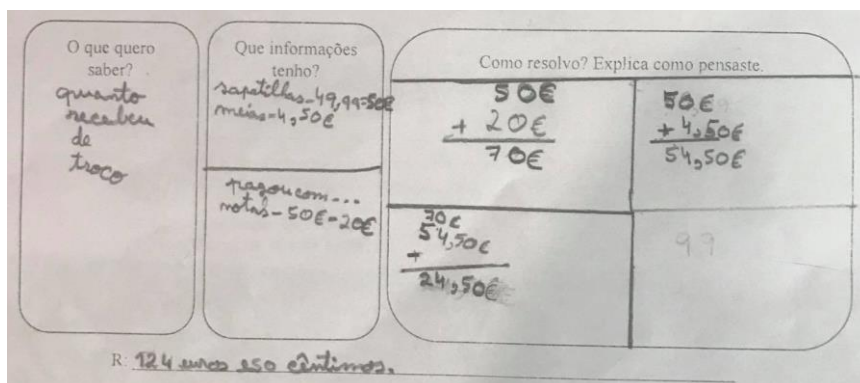 O que quero
saber?
quanto
recebeu
de
troco
Que informações
tenho?
sapatilhas-49,99=50€
meias=4,50€
pagou com...
notas-50€-20€
Como resolvo? Explica como pensaste.
50€
+ 20€
70€
50€
+ 4,50€
54,50€
70€
54,50€
+
24,50€
99
R: 124 euros e50 cêntimos.